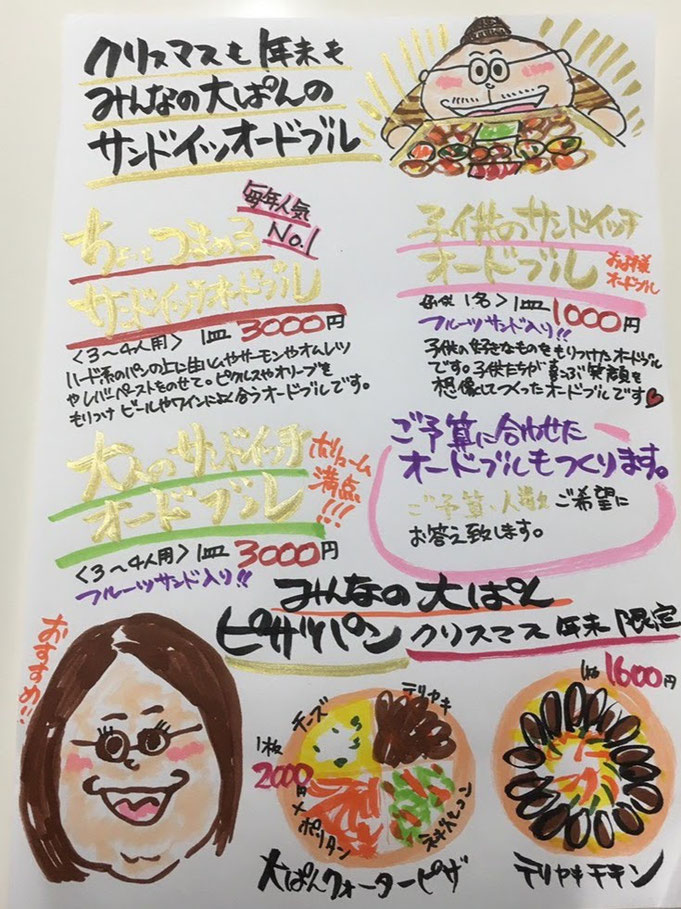 クリスマスも年末も
みんなの大ぱんの
サンドイッチオードブル
毎年人気
No.1
ちょっとつまめる
サンドイッチオードブル
<3〜4人用> 1皿 3000円
ハード系のパンの上に生ハムやサーモンやオムレツ
やレバーペーストをのせて。ピクルスやオリーブを
もりつけビールやワインによく合うオードブルです。
子供のサンドイッチ
オードブル
お子様
オードブル
1名> 1皿 1000円
フルーツサンド入り!!
子供の好きなものをもりつけたオードブル
です。子供たちが喜ぶ笑顔を
想像してつくったオードブルです
大人のサンドイッチ
オードブル
ボリューム
満点!!!
<3〜4人用> 1皿 3000円
フルーツサンド入り!!
ご予算に合わせた
オードブルもつくります。
ご予算・人数 ご希望に
お答え致します。
みんなの大ぱん
ピザパン クリスマス年末限定
おすすめ!!
チーズ
テリヤキ
1枚
2000円
ナポリタン
大ぱんクォーターピザ
1枚 1600円
テリヤキチキン